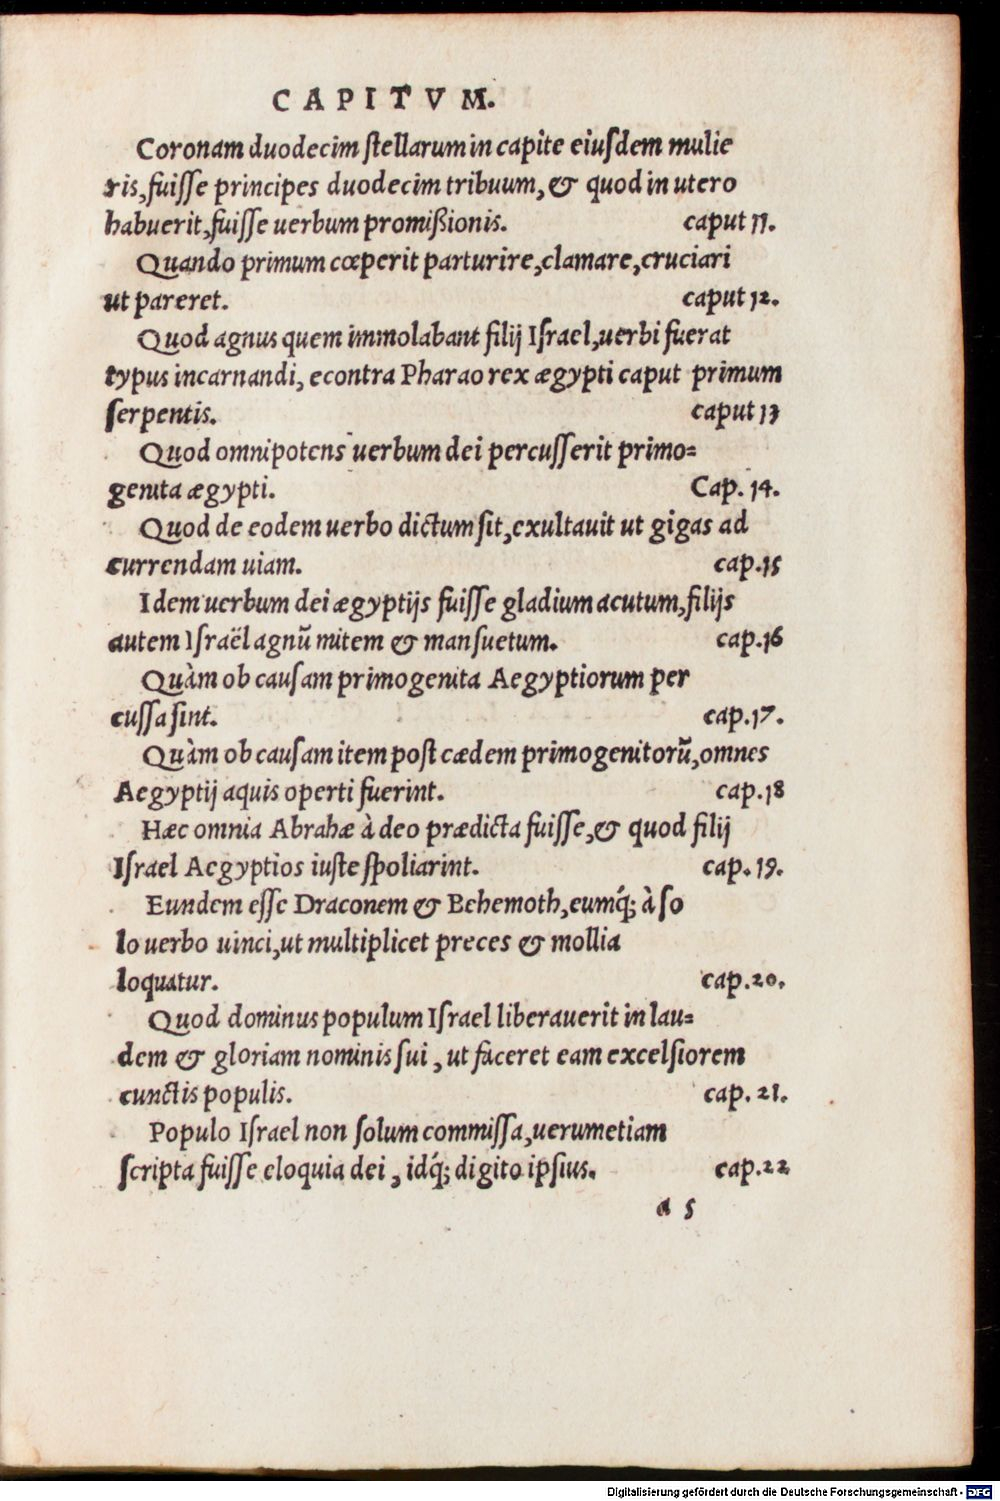 CAPITVM.
Coronam duodecim stellarum in capite eiusdem mulie
ris, fuisse principes duodecim tribuum, & quod in utero
habuerit, fuisse uerbum promißionis. caput 11.
Quando primum cœperit parturire, clamare, cruciari
ut pareret. caput 12.
Quod agnus quem immolabant filij Israel, uerbi fuerat
typus incarnandi, econtra Pharao rex ægypti caput primum
serpentis. caput 13
Quod omnipotens uerbum dei percusserit primo=
genita ægypti. Cap. 14.
Quod de eodem uerbo dictum sit, exultauit ut gigas ad
currendam uiam. cap. 15
Idem uerbum dei ægyptijs fuisse gladium acutum, filijs
autem Israël agnũ mitem & mansuetum. cap. 16
Quàm ob causam primogenita Aegyptiorum per
cussa sint. cap. 17.
Quàm ob causam item post cædem primogenitorũ, omnes
Aegyptij aquis operti fuerint. cap. 18
Hæc omnia Abrahæ à deo prædicta fuisse, & quod filij
Israel Aegyptios iuste spoliarint. cap. 19.
Eundem esse Draconem & Behemoth, eumq́; à so
lo uerbo uinci, ut multiplicet preces & mollia
loquatur. cap. 20.
Quod dominus populum Israel liberauerit in lau=
dem & gloriam nominis sui, ut faceret eam excelsiorem
cunctis populis. cap. 21.
Populo Israel non solum commissa, uerumetiam
scripta fuisse eloquia dei, idq́; digito ipsius. cap. 22
a 5
Digitalisierung gefördert durch die Deutsche Forschungsgemeinschaft - DFG